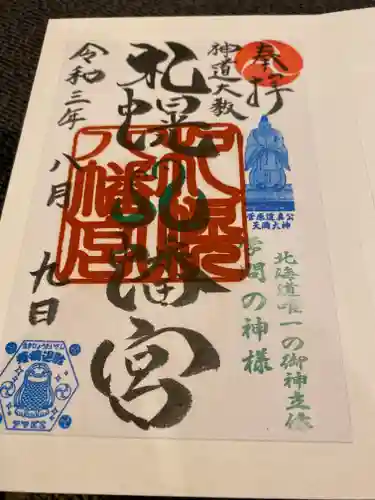 奉拝
神道大教
札幌八幡宮
令和三年
八月
九日
札幌八幡宮
菅原道真公
天満大神
北海道唯一の御神立像
学問の神様
アマビエ